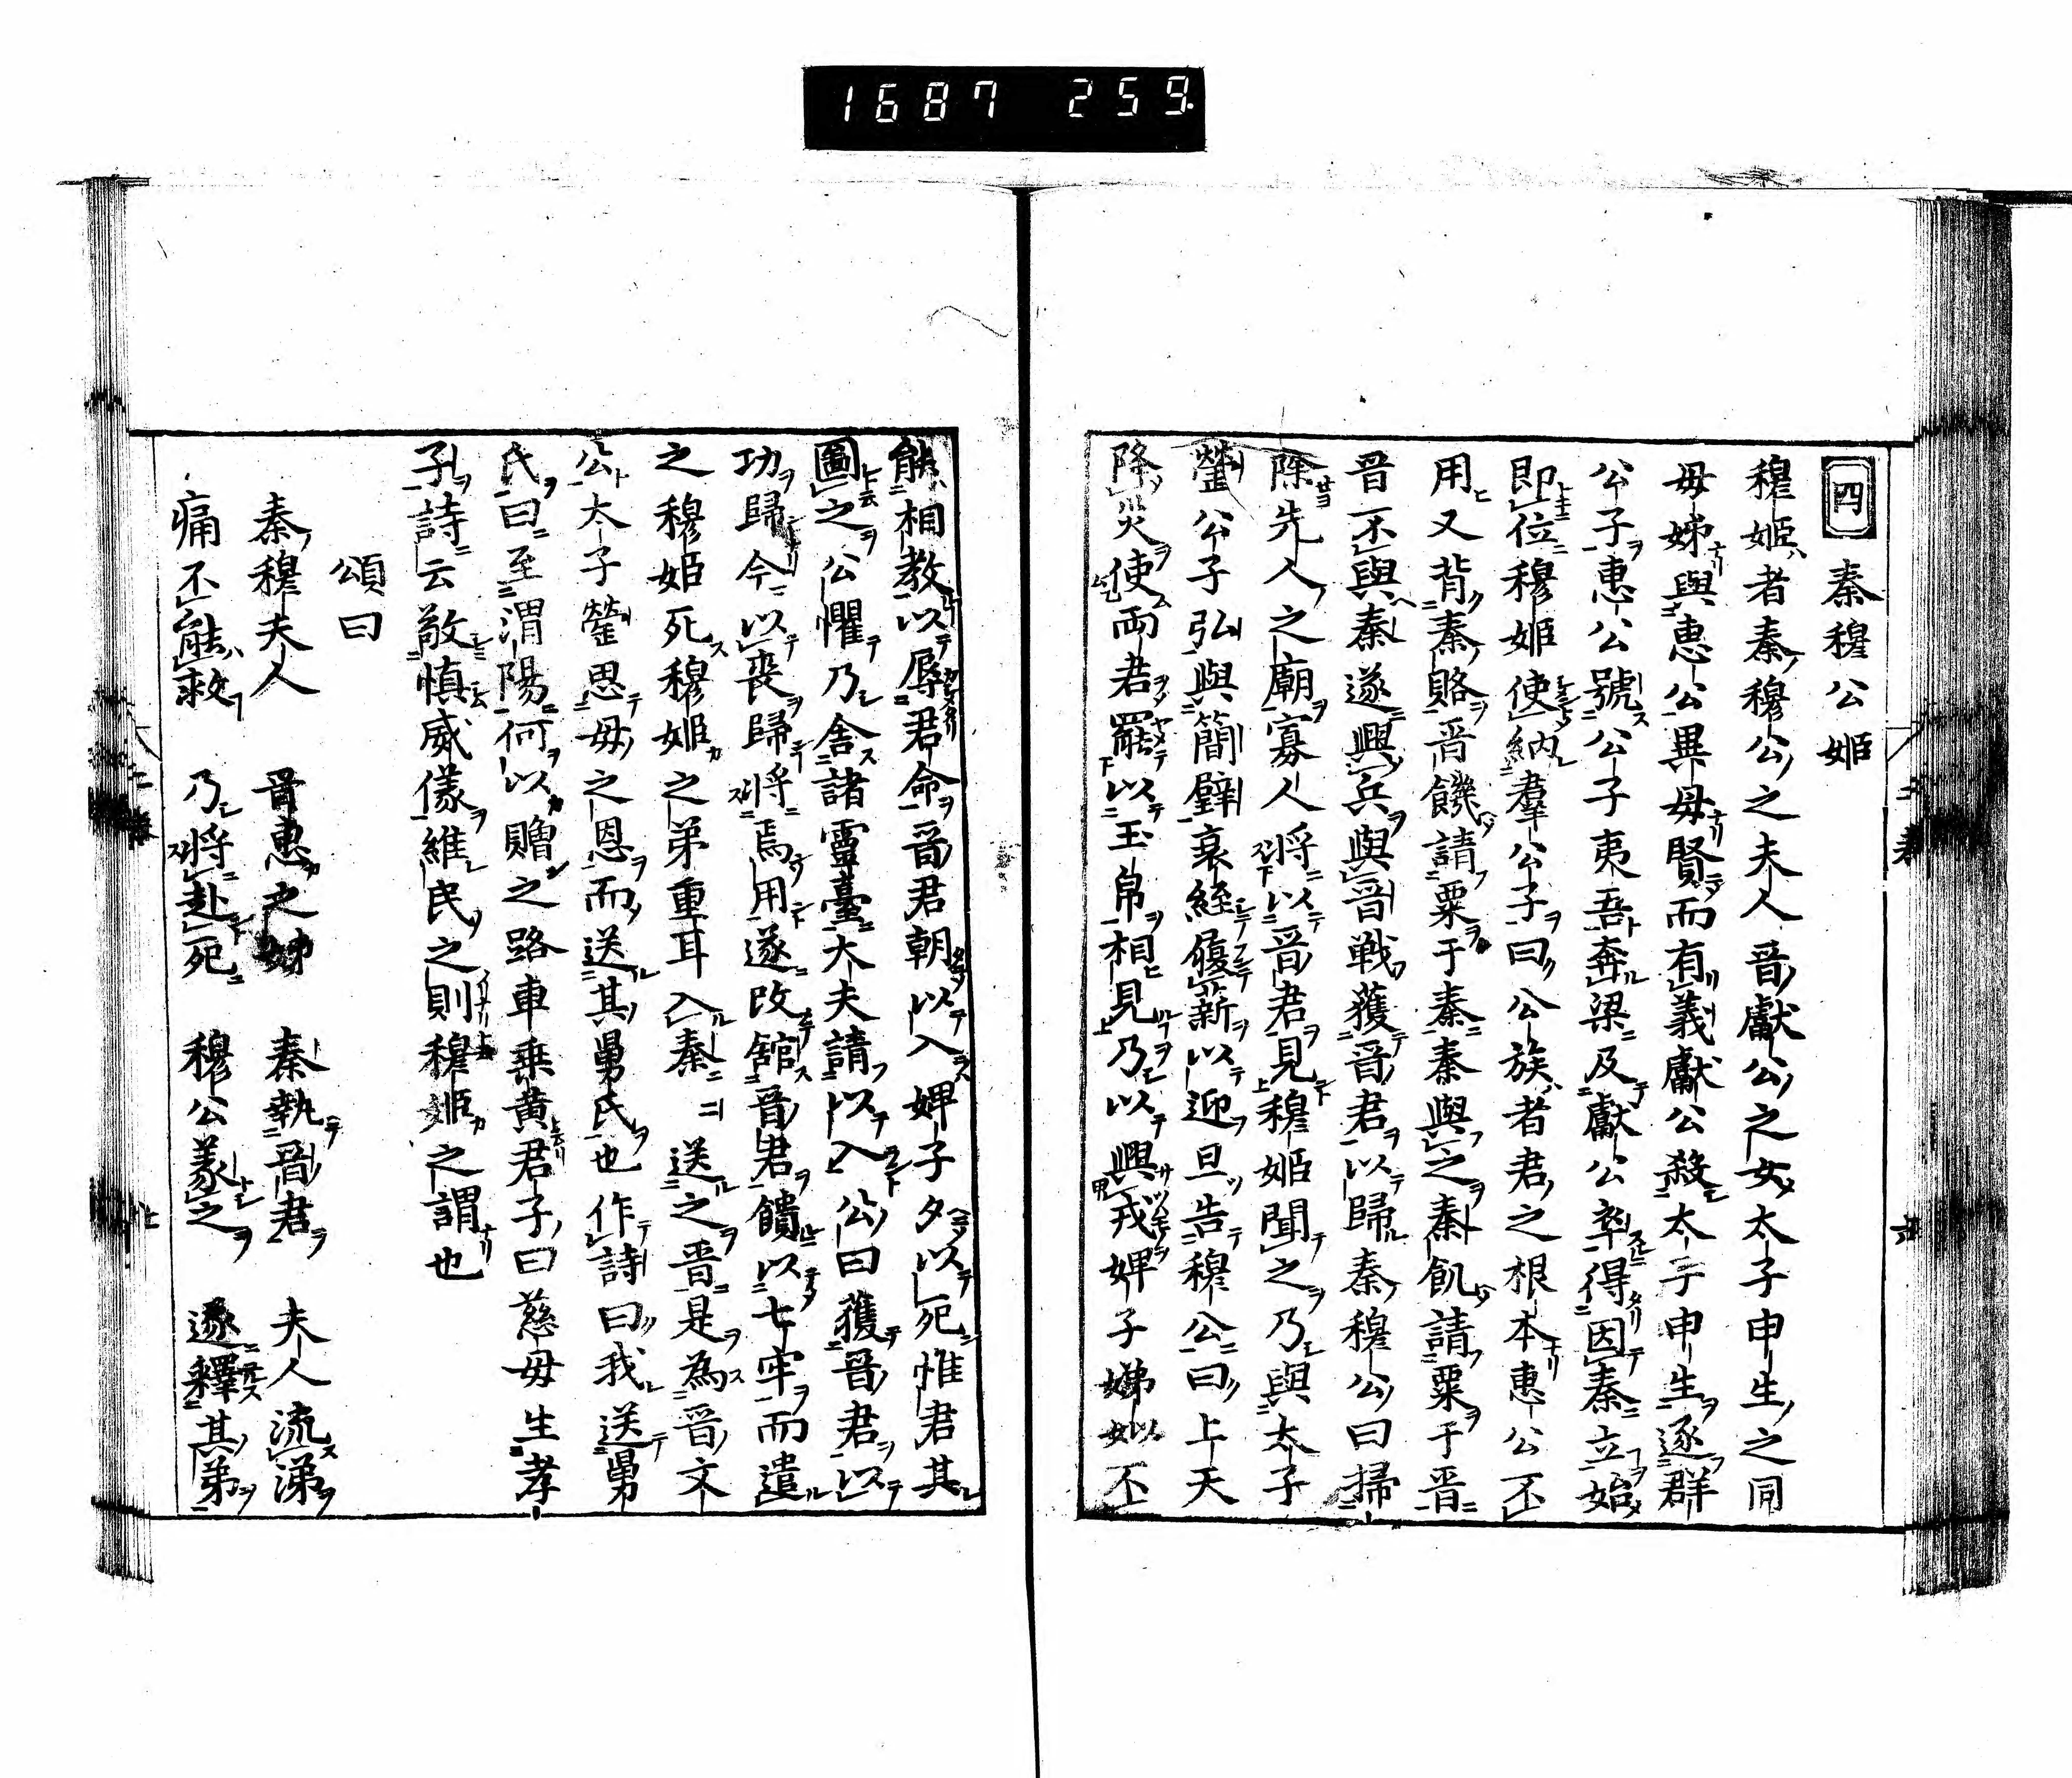 1687 259.
四 秦穆公姫
穆姫者秦穆公之夫人晉獻公之女太子申生之同
母姊與惠公異母賢而有義獻公殺太子申生逐群
公子惠公號公子夷吾奔梁及獻公卒得因秦立始
即位穆姫使納羣公子曰公族者君之根本惠公不
用又背秦賂晉饑請粟于秦秦與之秦飢請粟于晉
晉不與秦遂興兵與晉戦獲晉君以歸秦穆公曰掃
除先人之廟寡人將以晉君見穆姫聞之乃與太子
罃公子弘與簡璧衰絰履薪以迎且告穆公曰上天
降災使兩君罷以玉帛相見乃以興戎婢子娣姒不
能相教以辱君命晉君朝以入婢子夕以死惟君其
圖之公懼乃舍諸靈臺大夫請以入公曰獲晉君以
功歸今以喪歸將焉用遂改舘晉君饋以七牢而遣
之穆姫死穆姫之弟重耳入秦秦送之晉是為晉文
公太子罃思母之恩而送其舅氏也作詩曰我送舅
氏曰至渭陽何以贈之路車乗黄君子曰慈母生孝
子詩云敬慎威儀維民之則穆姫之謂也
頌曰
秦穆夫人 晉惠之姊 秦執晉君 夫人流涕
痛不能救 乃將赴死 穆公義之 遂釋其弟